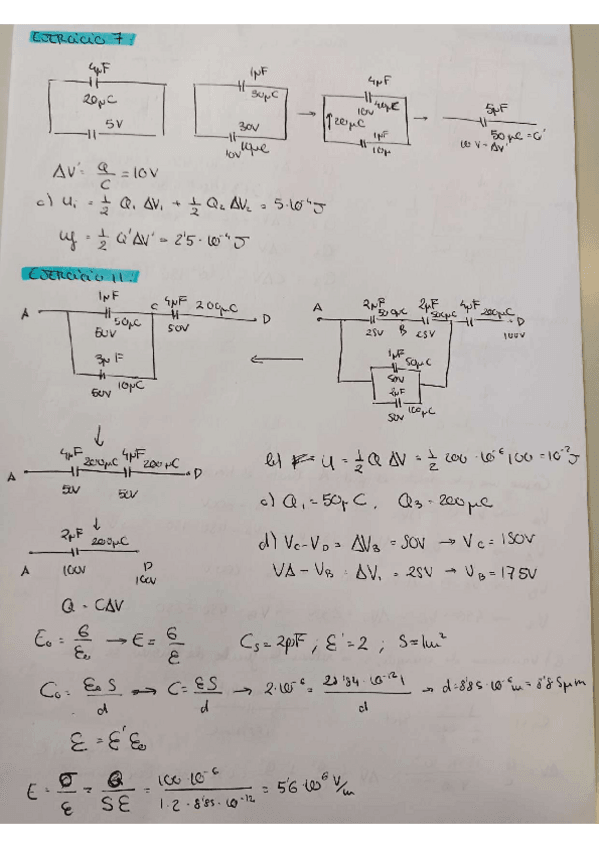 EJERCICIO 7:
4μF
20μC
5V
1μF
30μC
30V
10V 10μC
4μF
10V 40μC
↑20μC
1μF
10μ
5μF
50μC = Q'
10V = ΔV'
ΔV' = Q/C = 10V
c) Ui = 1/2 Q1 ΔV1 + 1/2 Q2 ΔV2 = 5·10^-4 J
Uf = 1/2 Q'ΔV' = 2'5·10^-4 J
EJERCICIO 11:
A
1μF
50μC
50V
C
4μF 200μC
50V
D
3μF
50V
A
2μF
25V
B
2μF
25V
4μF 200μC
D
100V
1μF
50μC
50V
2μF
50V
100μC
A
4μF 200μC
50V
4μF 200μC
50V
D
2μF
200μC
A
100V
D
100V
b) U = 1/2 Q ΔV = 1/2 200·10^-6 100 = 10^-2 J
c) Q1 = 50μC, Q3 = 200μC
d) Vc - VD = ΔV3 = 50V → Vc = 150V
VA - VB = ΔV1 = 25V → VB = 175V
Q = CΔV
E0 = σ/ε0 → E = σ/ε
C5 = 2μF; ε' = 2; S = 1m²
C0 = ε0 S/d → C = εS/d → 2·10^-6 =
→ d = 8'85·10^-6 m = 8'85μm
ε = ε'ε0
E = σ/ε = Q/Sε = 100·10^-6/1·2·8'85·10^-12 = 5'6·10^6 V/m